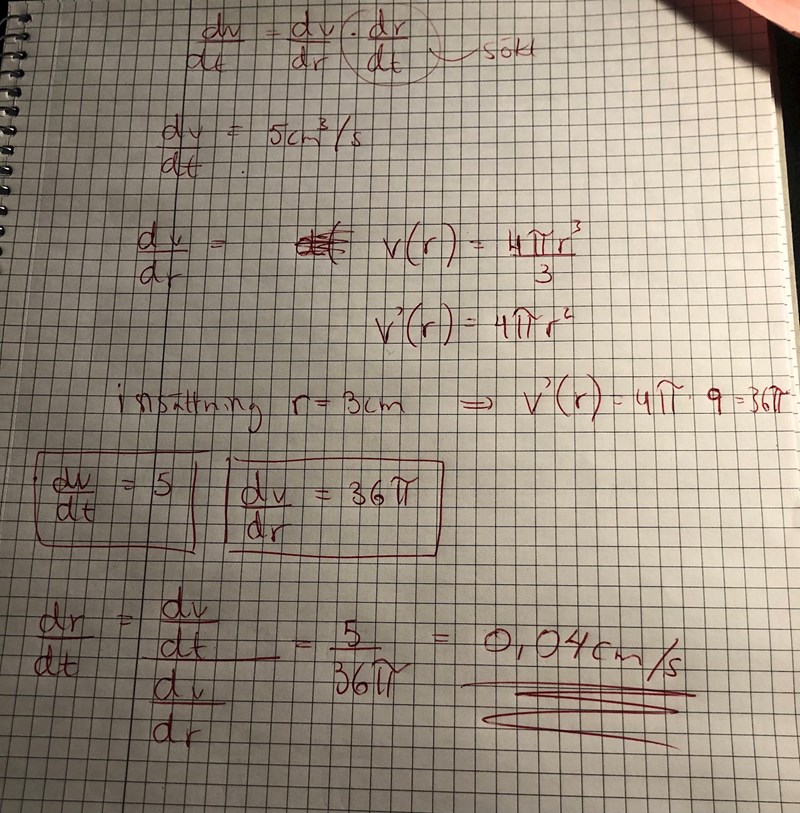 dv/dt = dv/dr · dr/dt sökt
dv/dt = 5cm³/s
dv/dr = v(r) = 4πr³/3
v'(r) = 4πr²
insättning r = 3cm ⇒ v'(r) = 4π · 9 = 36π
dv/dt = 5 dv/dr = 36π
dr/dt = (dv/dt)/(dv/dr) = 5/36π = 0,04cm/s